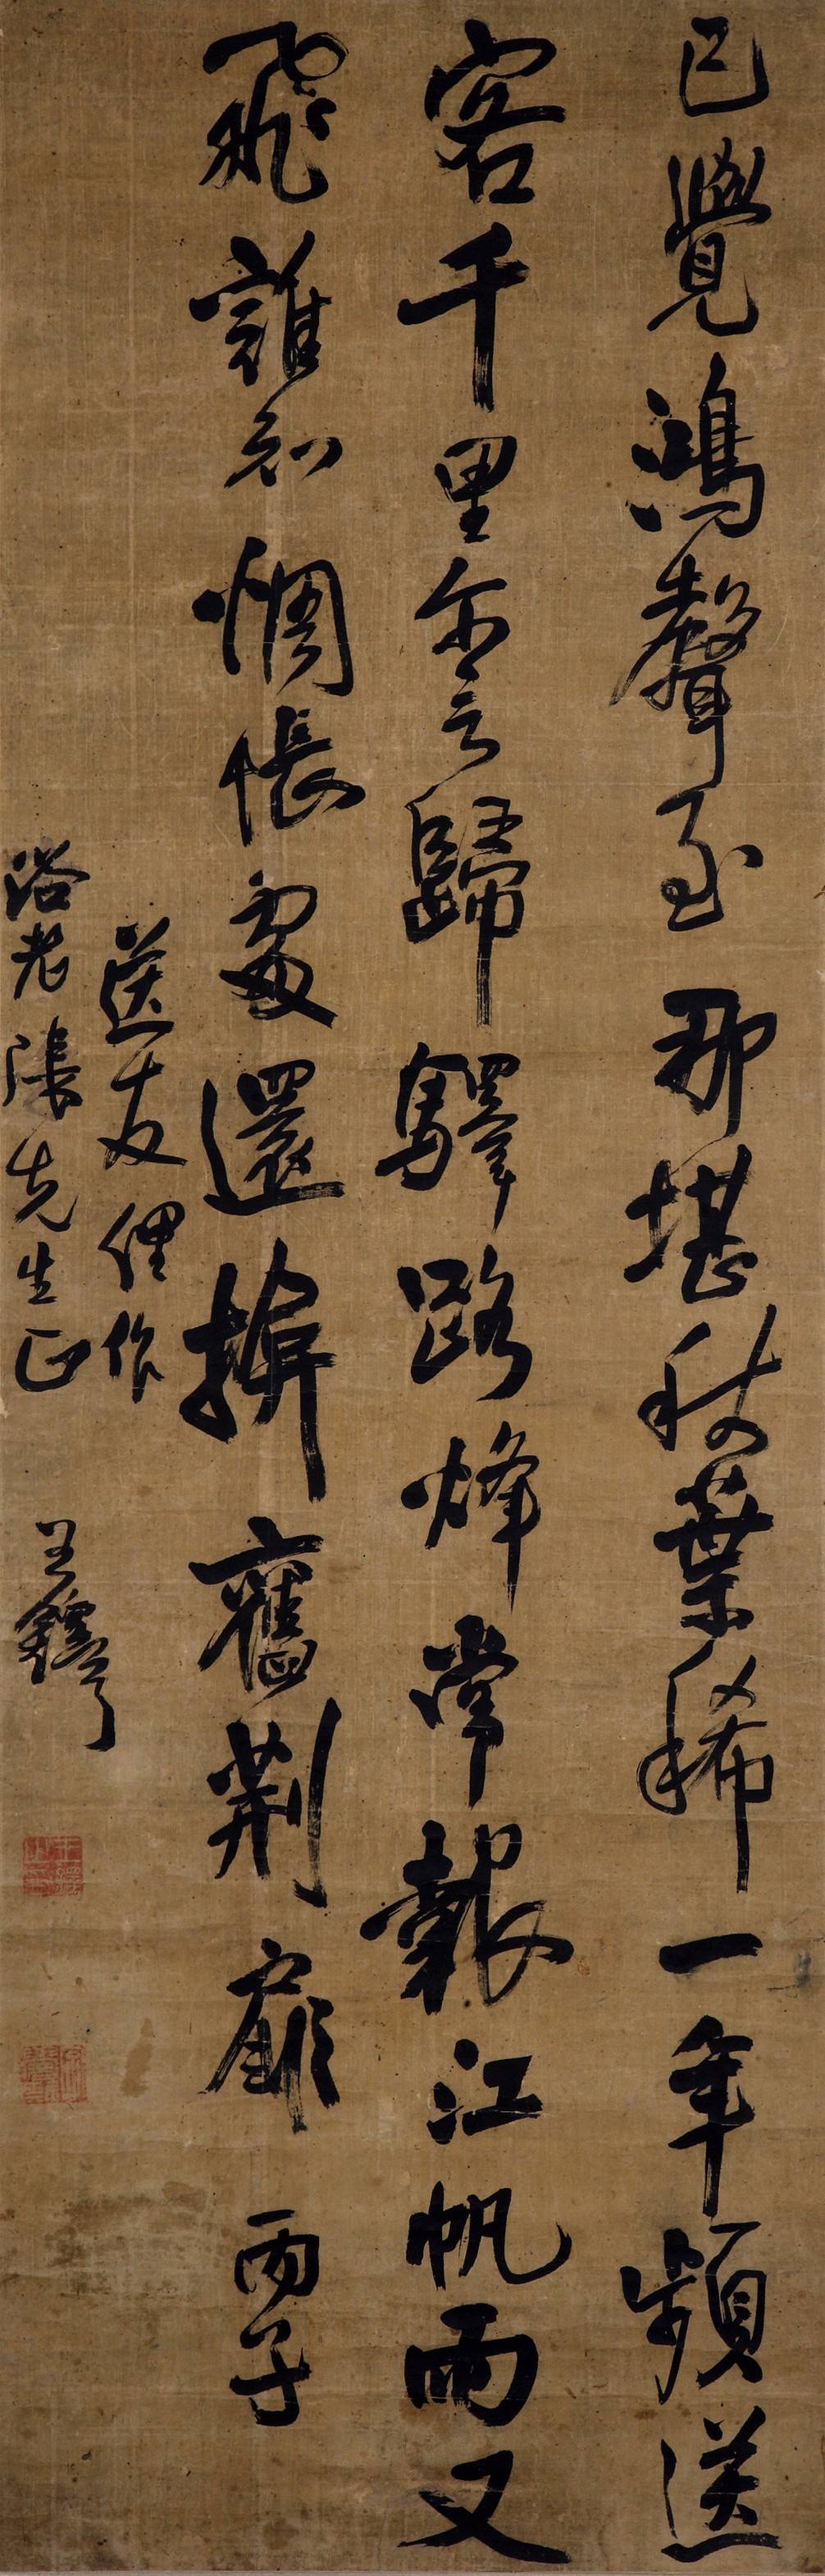 已覺鴻聲至那堪秋葉稀一年頻送
客千里尔言歸驛路烽常報江帆雨又
飛誰知惆悵處還掩舊荆扉 丙子
送友俚作
洛老張先生正 王鐸